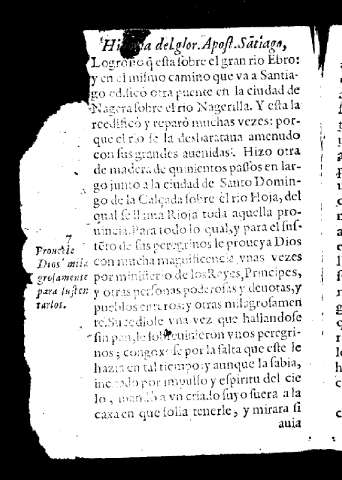 Historia del glor. Apost. Sãtiago,
Logroño q̃ esta sobre el gran rio Ebro:
y en el mismo camino que va a Santia-
go edificó otra puente en la ciudad de
Nagera sobre el rio Nagerilla. Y esta la
reedificó y reparó muchas vezes: por-
que el rio se la desbarataua amenudo
con sus grandes auenidas. Hizo otra
de madera de quinientos passos en lar-
go junto a la ciudad de Santo Domin-
go de la Calçada sobre el rio Hoja, del
qual se llama Rioja toda aquella pro-
uincia. Para todo lo qual, y para el sus-
tẽto de sus peregrinos le proueya Dios
con mucha magnificencia, vnas vezes
por ministerio de los Reyes, Principes,
y otras personas poderosas y deuotas, y
pueblos enteros: y otras milagrosamen
te. Sucediole vna vez que hallandose
sin pan, le sobreuinieron vnos peregri-
nos; congoxose por la falta que este le
hazia en tal tiempo: y aunque la sabia,
incitado por impulso y espiritu del cie
lo, mandó a vn criado suyo fuera a la
caxa en que solia tenerle, y mirara si
auia
7
Proucele
Dios mila
grosamente
para susten
tarlos.